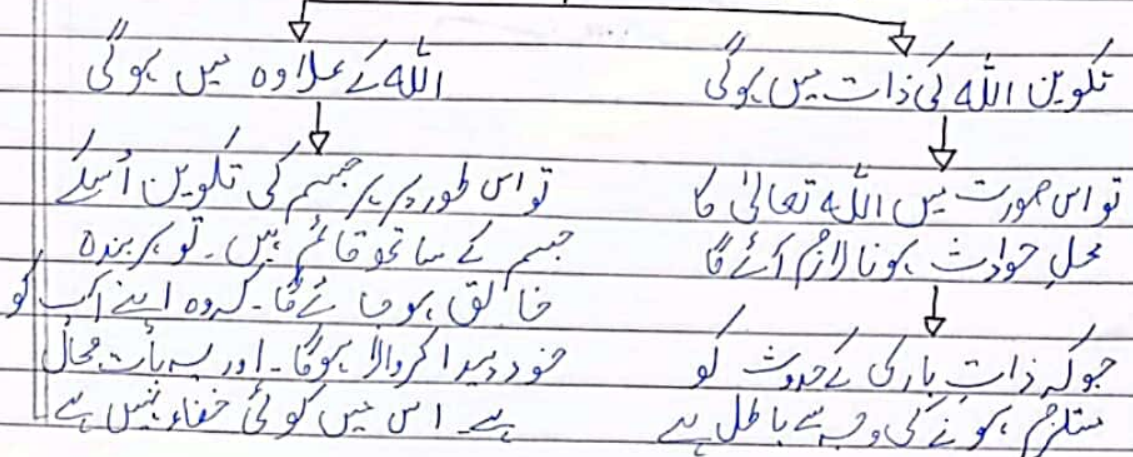 تکوین اللہ کی ذات میں ہوگی
تو اس صورت میں اللہ تعالیٰ کا
محلِ حوادث ہونا لازم آئے گا
جوکہ ذات باری کے حدوث کو
مستلزم ہونے کی وجہ سے باطل ہے
اللہ کے علاوہ میں ہوگی
تو اس طور پر ہر جسم کی تکوین اُسکے
جسم کے ساتھ قائم ہیں۔ تو ہر بندہ
خالق ہو جائے گا۔ کہ وہ اپنے آپ کو
خود پیدا کر والا ہوگا۔ اور یہ بات محال
ہے۔ اس میں کوئی خفاء نہیں ہے